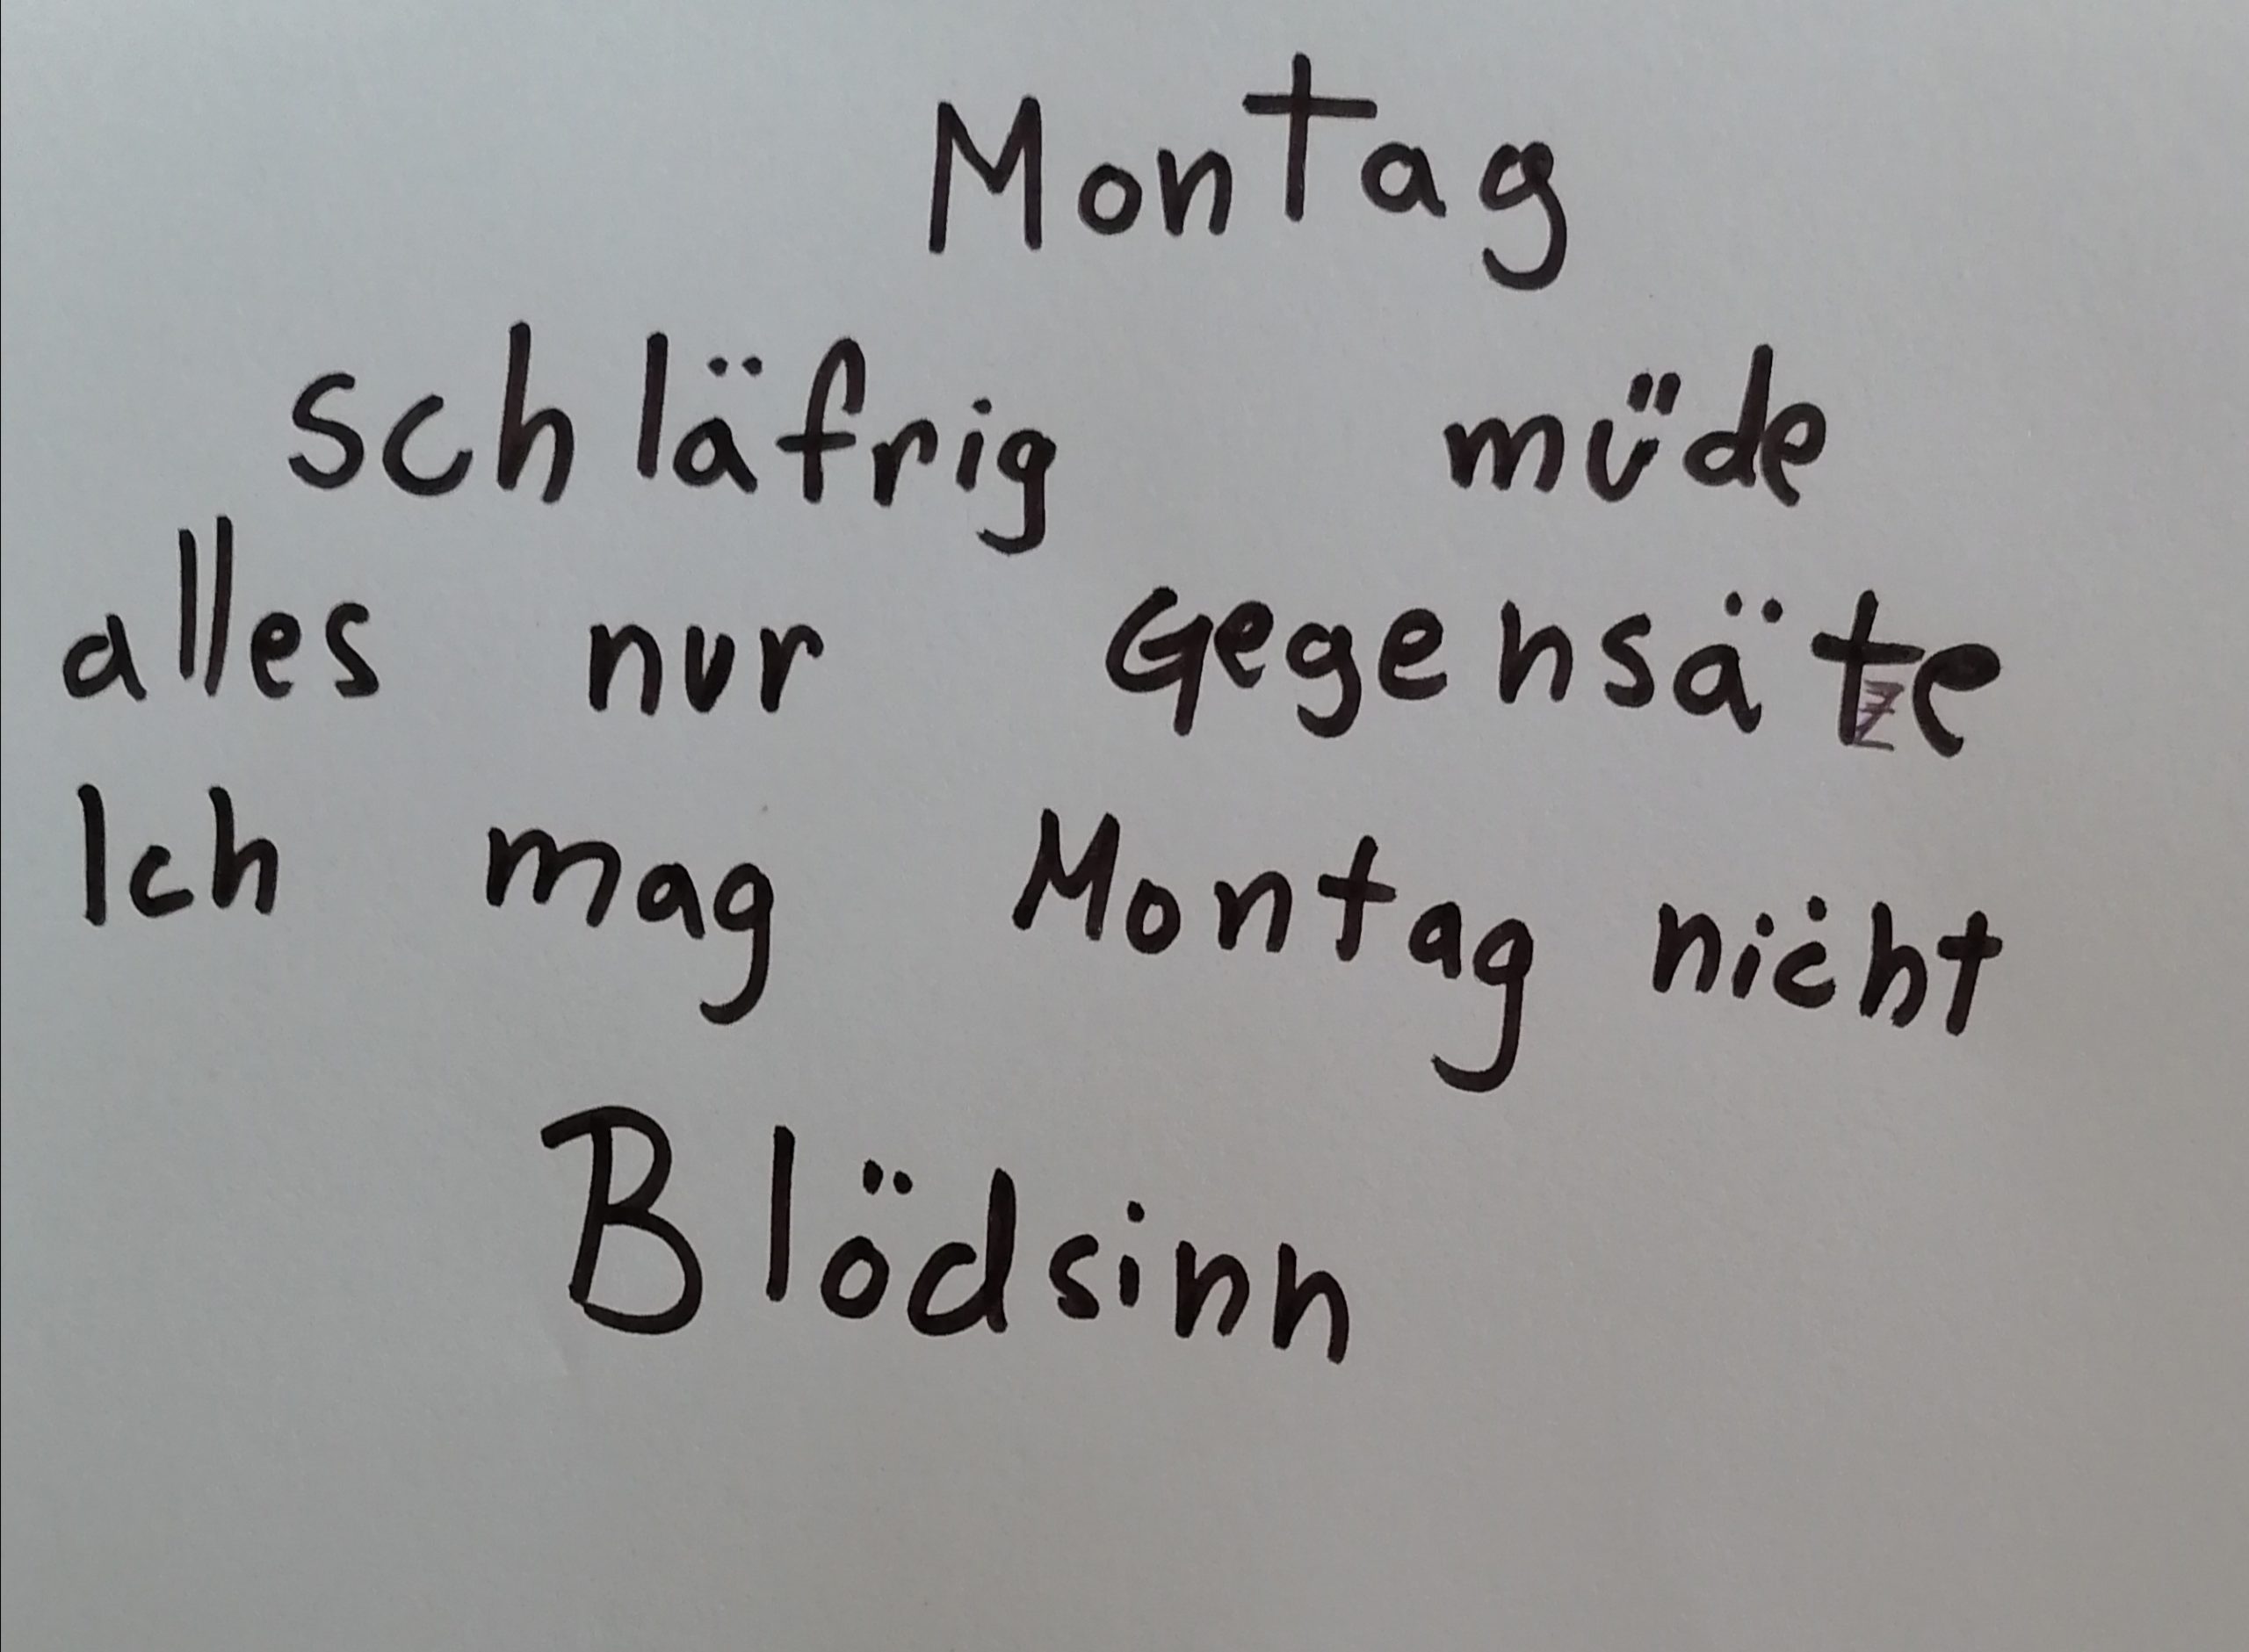 Montag
schläfrig müde
alles nur Gegensätze
Ich mag Montag nicht
Blödsinn